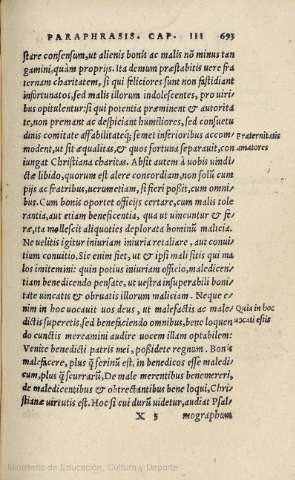 PARAPHRASIS. CAP. III 693
stare consensum, ut alienis bonis ac malis nō minus tan
gamini, quàm proprijs. Ita demum præstabitis uere fra
ternam charitatem, si qui feliciores sunt non fastidiant
infortunatos, sed malis illorum indolescentes, pro uiri
bus opitulentur: si qui potentia præminent & autorita
te, non premant ac despiciant humiliores, sed consuetu
dinis comitate affabilitateq; semet inferioribus accom
modent, ut sit æqualitas, & quos fortuna separauit, con
iungat Christiana charitas. Absit autem à uobis uindi
ctæ libido, quorum est alere concordiam, non solū cum
pijs ac fratribus, uerumetiam, si fieri possit, cum omni
bus. Cum bonis oportet officijs certare, cum malis tole
rantia, aut etiam beneficentia, qua ut uincuntur & fe
ræ, ita mollescit aliquoties deplorata hominū malicia.
Ne uelitis igitur iniuriam iniuria retaliare, aut conui
tium conuitio. Sic enim fiet, ut & ipsi mali sitis qui ma
los imitemini: quin potius iniuriam officio, maledicen
tiam benedicendo pensate, ut uestra insuperabili boni
tate uincatis & obruatis illorum maliciam. Neque e-
nim in hoc uocauit uos deus, ut malefactis ac male
dictis superetis, sed beneficiendo omnibus, bene loquen
do cunctis mereamini audire uocem illam optabilem:
Venite benedicti patris mei, possidete regnum. Bonis
malefacere, plus q̃ ferinū est, in benedicos esse maledi
cum, plus q̃ scurrarū. De male merentibus benemereri,
de maledicentibus & obtrectantibus bene loqui, Chri
stianæ uirtutis est. Hoc si cui durū uidetur, audiat Psal-
X 5 mographum
fraternitatis
amatores
Quia in hoc
uocati estis
Ministerio de Educación, Cultura y Deporte